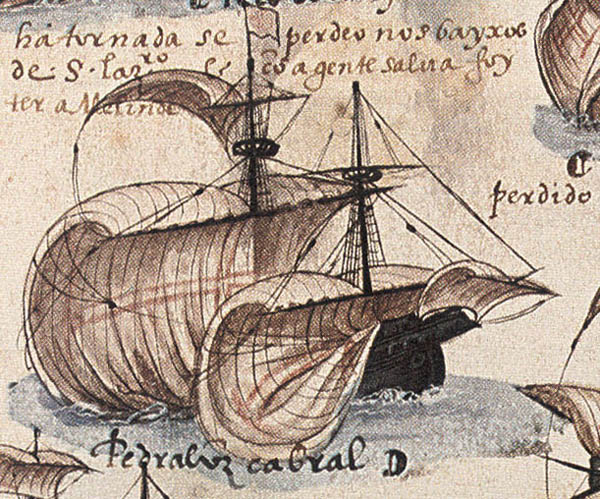 há tornada se perdeo nos bayxos
de .S. lazro e cõ a gente salva foy
ter a Melinde
perdido
Pedralvrz cabral D